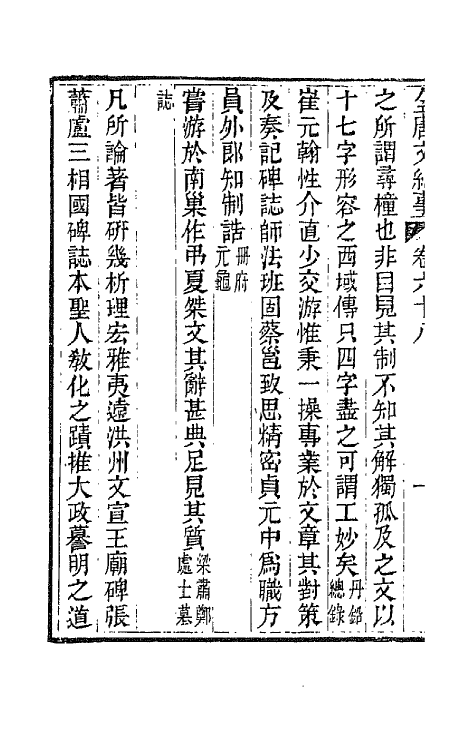 全唐文紀事 卷六十八 一
之所謂尋橦也非目見其制不知其解獨孤及之文以
十七字形容之西域傳只四字盡之可謂工妙矣丹鉛總錄
崔元翰性介直少交游惟秉一操專業於文章其對策
及奏記碑誌師法班固蔡邕致思精密貞元中爲職方
員外郎知制誥冊府元龜
嘗游於南巢作弔夏桀文其辭甚典足見其質梁蕭鄭處士墓
誌
凡所論著皆研幾析理宏雅夷遠洪州文宣王廟碑張
蕭盧三相國碑誌本聖人敎化之蹟推大政謩明之道